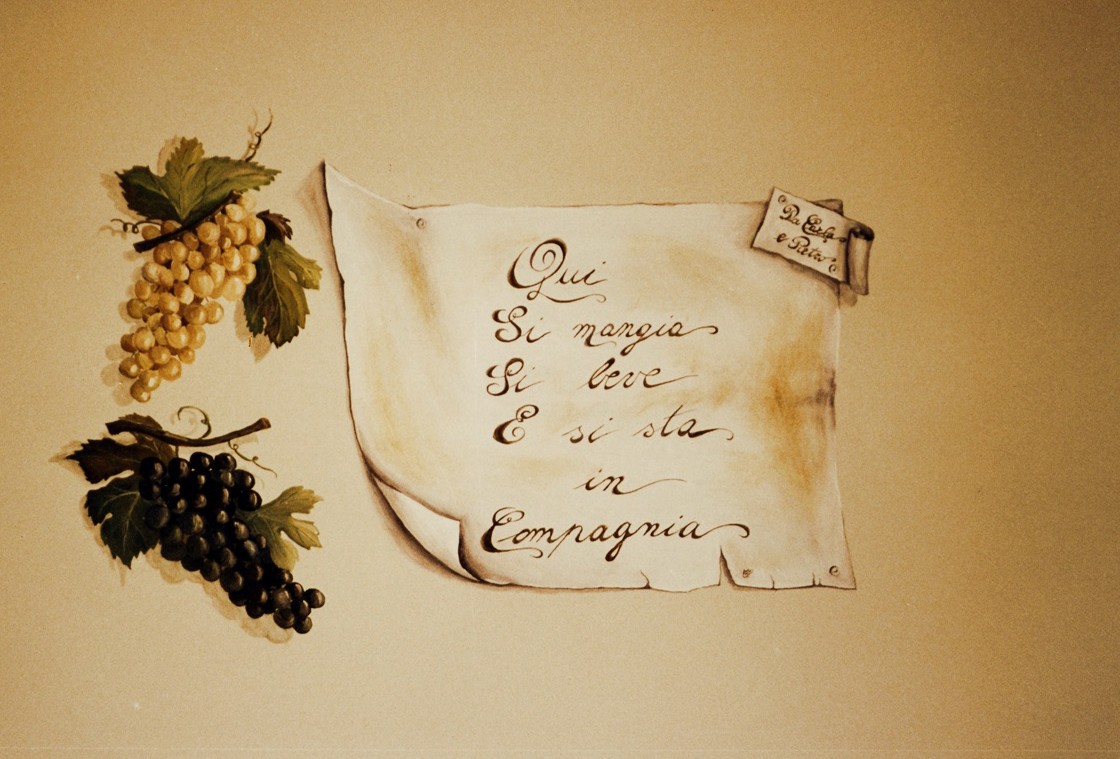 Qui
Si mangia
Si beve
E si sta
in
Compagnia
Da Carla
e Pietro